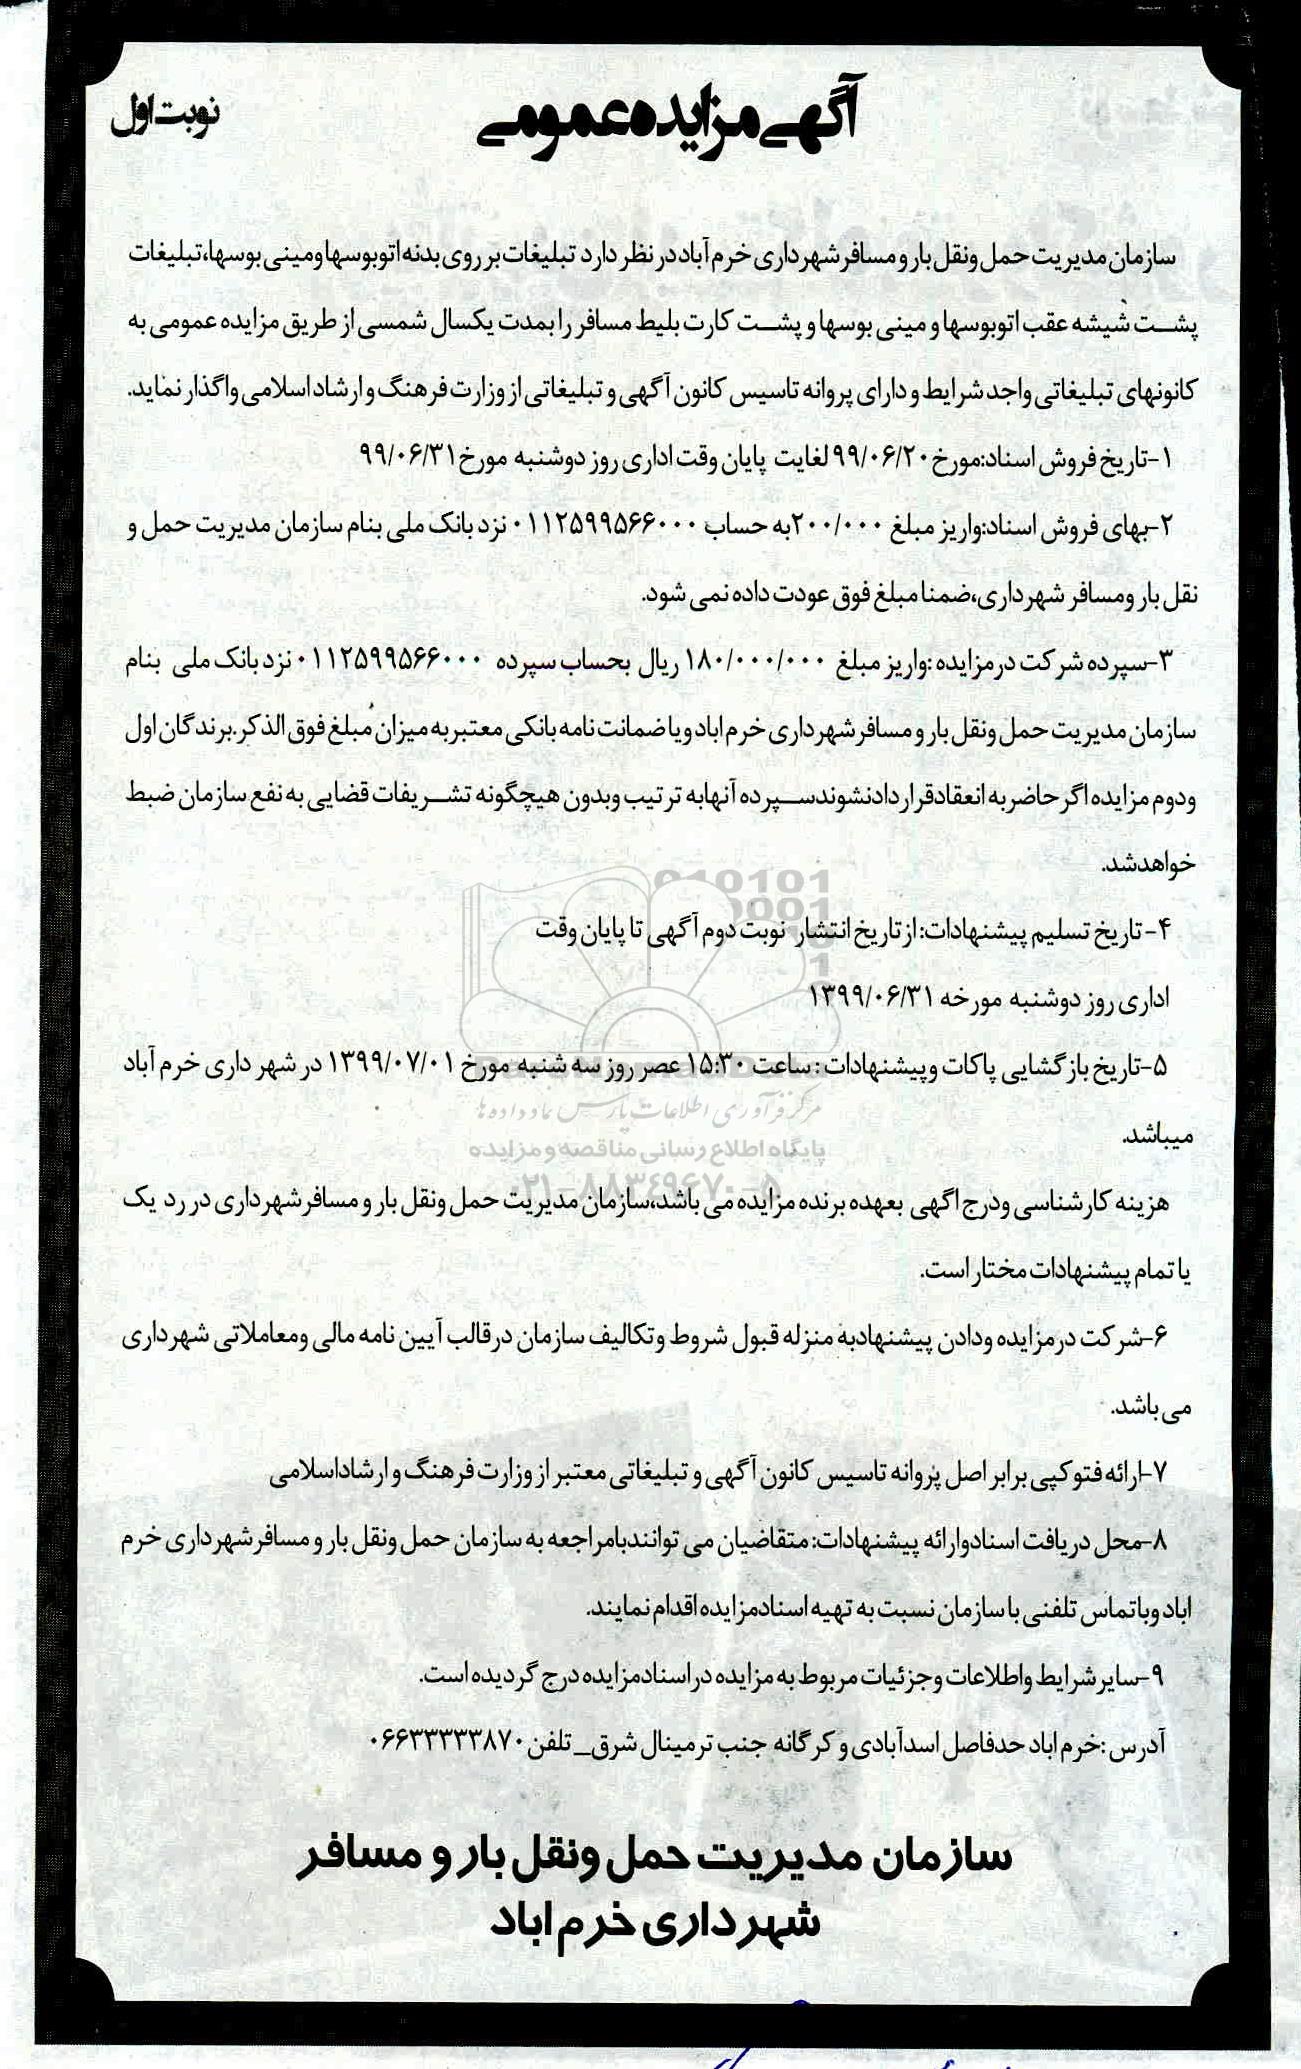 آگهی مزایده عمومی
نوبت اول
سازمان مدیریت حمل ونقل بار و مسافر شهرداری خرم آباد در نظر دارد تبلیغات بر روی بدنه اتوبوسها ومینی بوسها،تبلیغات
پشت شیشه عقب اتوبوسها و مینی بوسها و پشت کارت بلیط مسافر را بمدت یکسال شمسی از طریق مزایده عمومی به
کانونهای تبلیغاتی واجد شرایط و دارای پروانه تاسیس کانون آگهی و تبلیغاتی از وزارت فرهنگ و ارشاد اسلامی واگذار نماید.
۱-تاریخ فروش اسناد:مورخ ۹۹/۰۶/۲۰ لغایت پایان وقت اداری روز دوشنبه مورخ ۹۹/۰۶/۳۱
۲-بهای فروش اسناد:واریز مبلغ ۲۰۰/۰۰۰به حساب ۰۱۱۲۵۹۹۵۶۶۰۰۰ نزد بانک ملی بنام سازمان مدیریت حمل و
نقل بار ومسافر شهرداری،ضمنا مبلغ فوق عودت داده نمی شود.
۳-سپرده شرکت درمزایده :واریز مبلغ ۱۸۰/۰۰۰/۰۰۰ ریال بحساب سپرده ۰۱۱۲۵۹۹۵۶۶۰۰۰ نزد بانک ملی بنام
سازمان مدیریت حمل ونقل بار و مسافر شهرداری خرم اباد ویا ضمانت نامه بانکی معتبر به میزان مبلغ فوق الذکر.برندگان اول
ودوم مزایده اگر حاضر به انعقادقراردادنشوندسپرده آنهابه ترتیب وبدون هیچگونه تشریفات قضایی به نفع سازمان ضبط
خواهدشد.
۴- تاریخ تسلیم پیشنهادات: از تاریخ انتشار نوبت دوم آگهی تا پایان وقت
اداری روز دوشنبه مورخه ۱۳۹۹/۰۶/۳۱
۵-تاریخ بازگشایی پاکات وپیشنهادات : ساعت ۱۵:۳۰ عصر روز سه شنبه مورخ ۱۳۹۹/۰۷/۰۱ در شهر داری خرم آباد
میباشد.
مرکز فرآوری اطلاعات پارس نماد داده ها
پایگاه اطلاع رسانی مناقصه و مزایده
۰۲۱-۸۸۳۴۹۶۷۰-۵
هزینه کارشناسی ودرج اگهی بعهده برنده مزایده می باشد،سازمان مدیریت حمل ونقل بار و مسافر شهرداری در رد یک
یا تمام پیشنهادات مختار است.
۶-شرکت درمزایده ودادن پیشنهادبه منزله قبول شروط وتکالیف سازمان درقالب آیین نامه مالی ومعاملاتی شهرداری
می باشد.
۷-ارائه فتوکپی برابر اصل پروانه تاسیس کانون آگهی و تبلیغاتی معتبر از وزارت فرهنگ و ارشاداسلامی
۸-محل دریافت اسنادوارائه پیشنهادات: متقاضیان می توانندبامراجعه به سازمان حمل ونقل بار و مسافر شهرداری خرم
اباد وباتماس تلفنی با سازمان نسبت به تهیه اسنادمزایده اقدام نمایند.
۹-سایر شرایط واطلاعات وجزئیات مربوط به مزایده در اسنادمزایده درج گردیده است.
آدرس :خرم اباد حدفاصل اسدآبادی و کرگانه جنب ترمینال شرق_ تلفن ۰۶۶۳۳۳۳۳۸۷۰
سازمان مدیریت حمل ونقل بار و مسافر
شهرداری خرم اباد